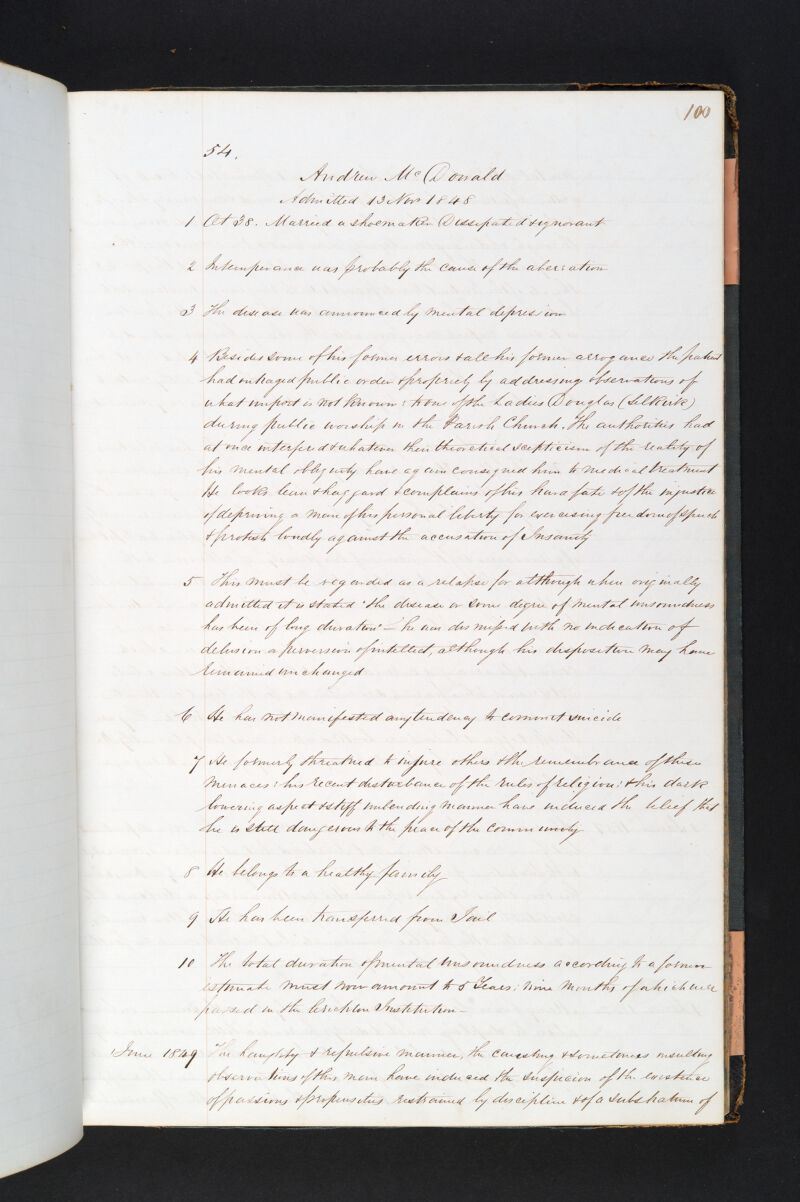 100
54.
Andrew McDonald
Admitted 13 Nov 1848
1 Aet 38. Married a shoemaker Dissipated & ignorant
2 Intemperance was probably the cause of the aberration
3 The disease was announced by mental depression
4 Besides some of his former errors & all his former arrogance the patient
had outraged public order & propriety by addressing observations of
what import is not known: to one of the Ladies Douglas (Selkirk)
during public worship in the Parish Church. The authorities had
at once interfered & whatever their theoretical scepticism of the reality of
his mental obliquity have again consigned him to medical treatment
He looks lean & haggard & complains of his hard fate & of the injustice
of depriving a man of his personal liberty for exercising freedom of speech
& protests loudly against the accusation of Insanity
5 This must be regarded as a relapse for although when originally
admitted it is stated "the disease or some degree of mental unsoundness
has been of long duration" – he was dismissed with no indication of
delusion or perversion of intellect, although his disposition may have
remained unchanged
6 He has not manifested any tendency to commit suicide
7 He formerly threatened to injure others & the remembrance of these
menaces: his recent disturbance of the rules of religion: & his dark
lowering aspect & stiff unbending manner have induced the belief that
he is still dangerous to the peace of the community
8 He belongs to a healthy family
9 He has been transferred from Jail
10 The total duration of mental unsoundness according to a former
estimate must now amount to 5 Years: nine months of which were
passed in the Crichton Institution –
June 1849 The haughty & repulsive manner, the caustic & sometimes insulting
observations of this man have induced the suspicion of the existence
of passions & propensities restrained by discipline & of a substratum of